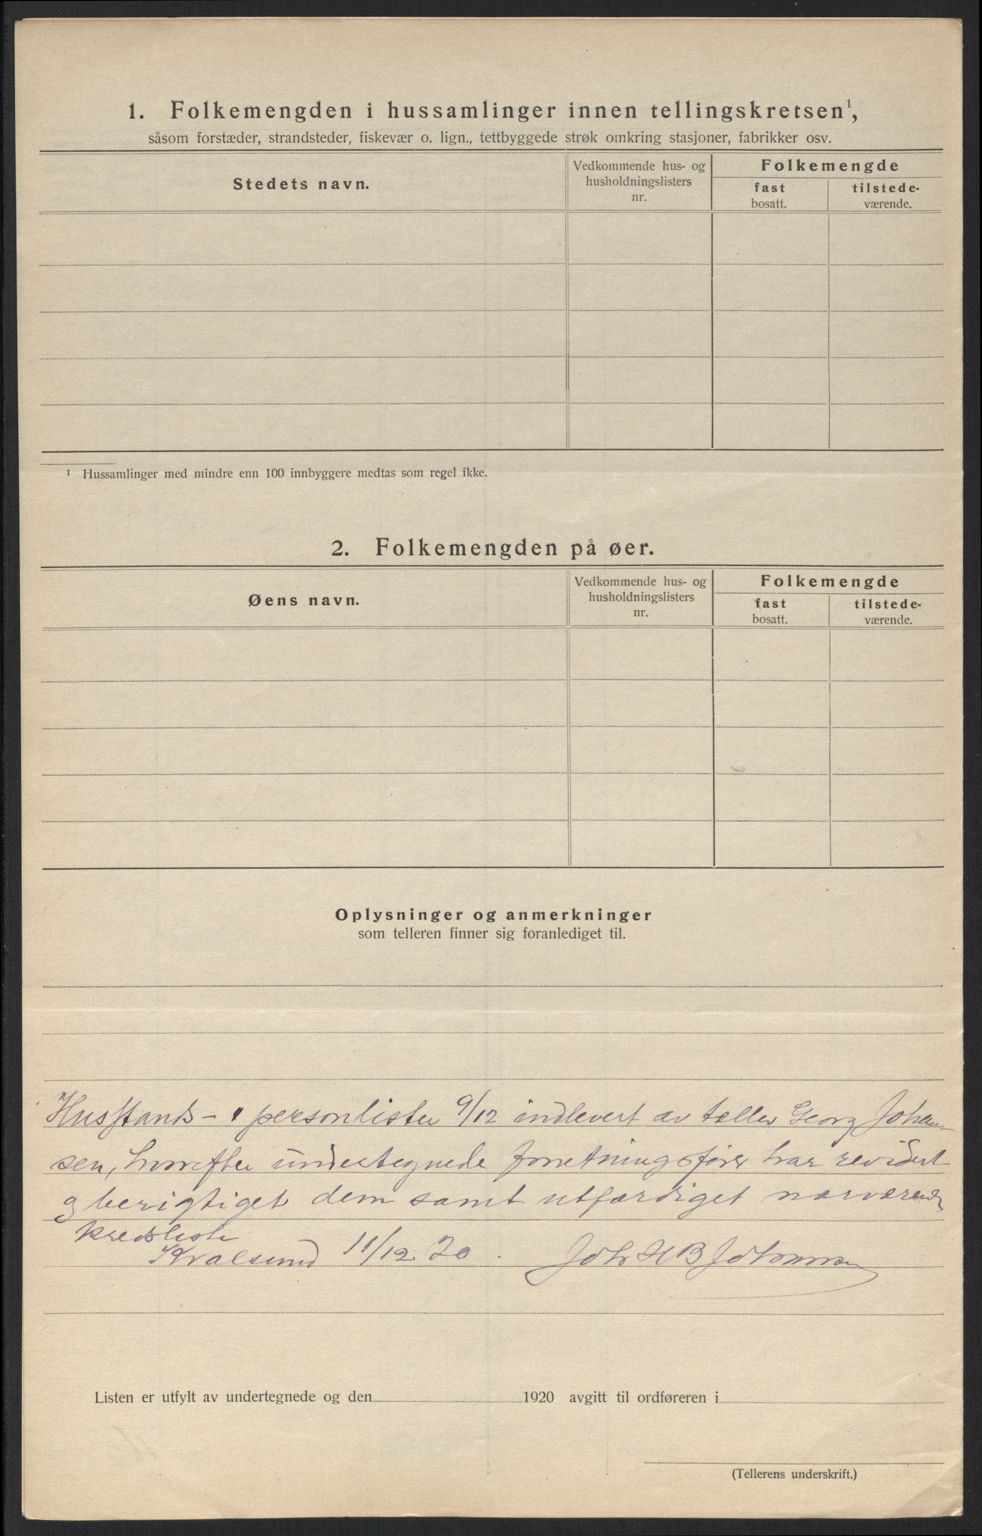 1. Folkemengden i hussamlinger innen tellingskretsen¹,
såsom forstæder, strandsteder, fiskevær o. lign., tettbyggede strøk omkring stasjoner, fabrikker osv.
Stedets navn.
Vedkommende hus- og
husholdningslisters
nr.
Folkemengde
fast
bosatt.
tilstede-
værende.
¹ Hussamlinger med mindre enn 100 innbyggere medtas som regel ikke.
2. Folkemengden på øer.
Øens navn.
Vedkommende hus- og
husholdningslisters
nr.
Folkemengde
fast
bosatt.
tilstede-
værende.
Oplysninger og anmerkninger
som telleren finner sig foranlediget til.
Husstands- personlister 9/12 indlevert av tæller Georg Johan-
sen, hvorefter undertegnede forretningsfører har revidert
og berigtiget dem samt utfærdiget nærværende
kredsliste
Kvalsund 11/12 20. Joh H B Johannsen
Listen er utfylt av undertegnede og den 1920 avgitt til ordføreren i
(Tellerens underskrift.)